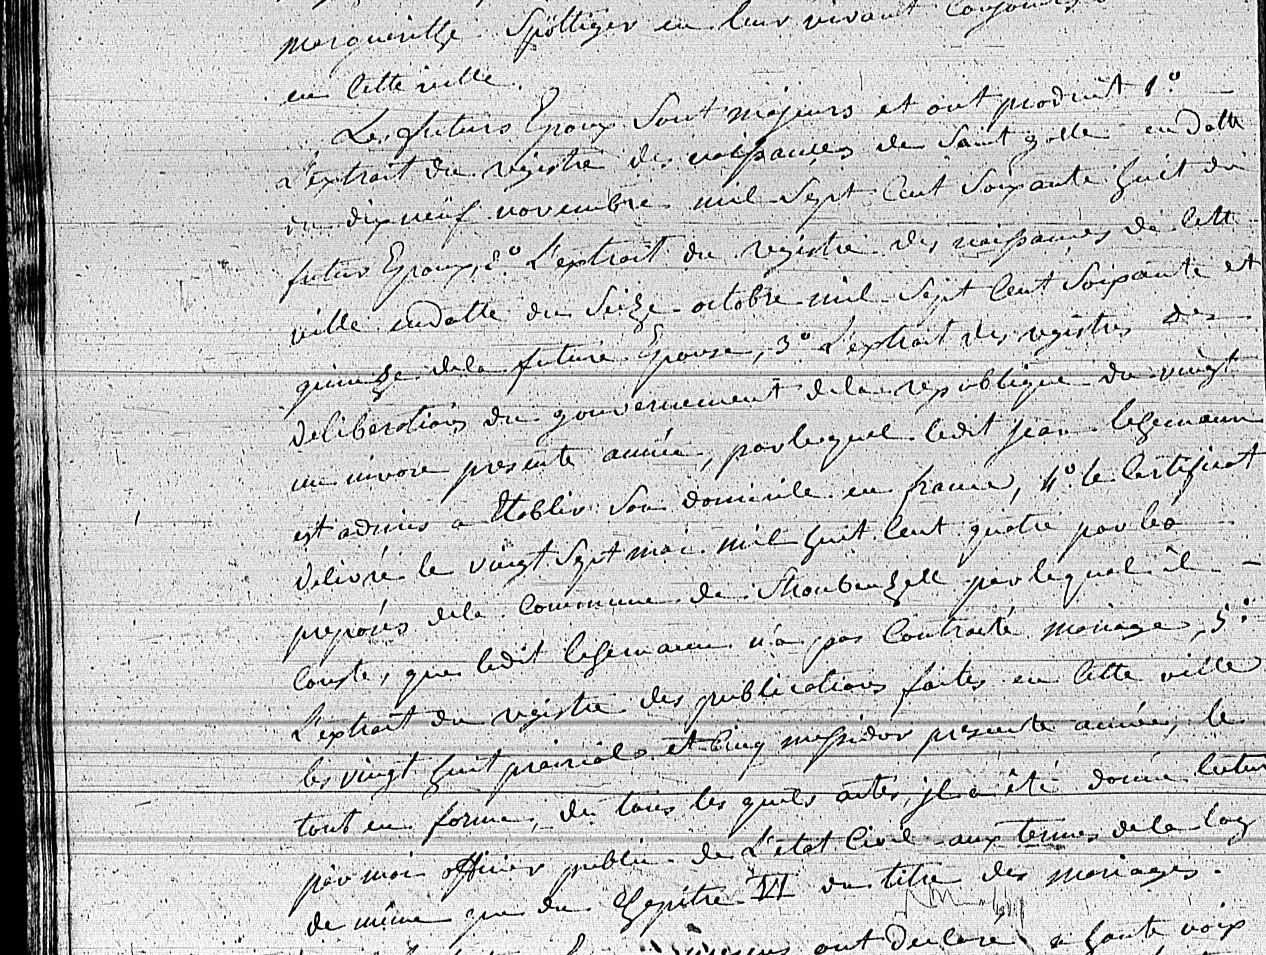 Marguerithe Spöttiger en leur vivant Conjoints
en Cette ville.
Les futurs Epoux Sont majeurs et ont produit 1.°
L'extrait du registre des naissances de Saint galle endatte
du dix neuf novembre mil Sept Cent Soixante huit du
futur Epoux, 2.° L'extrait du registre des naissances de Cette
ville endatte du Seize octobre mil Sept Cent Soixante et
quinze dela future Epouse, 3.° L'extrait des registres des
deliberations du gouvernement dela republique du vingt
un nivore presente année, parlequel ledit jean legemann
est admis a Etablir Son domicile en france, 4.° le Certificat
delivré le vingt Sept mai mil huit Cent quatre par les
preposés dela Commune de Straubenzell parlequel il
Conste, que ledit legemann n'a pas Contracté mariage, 5.°
L'extrait du registre des publications faites en Cette ville
les vingt huit prairial et Cinq messidor presente année, le
tout en forme, de tous les quels actes, jl a été donné lectur
par moi officier public de L'état Civil aux termes dela loy
de même que du Chapitre VI du titre des mariages.
ont declaré a haute voix